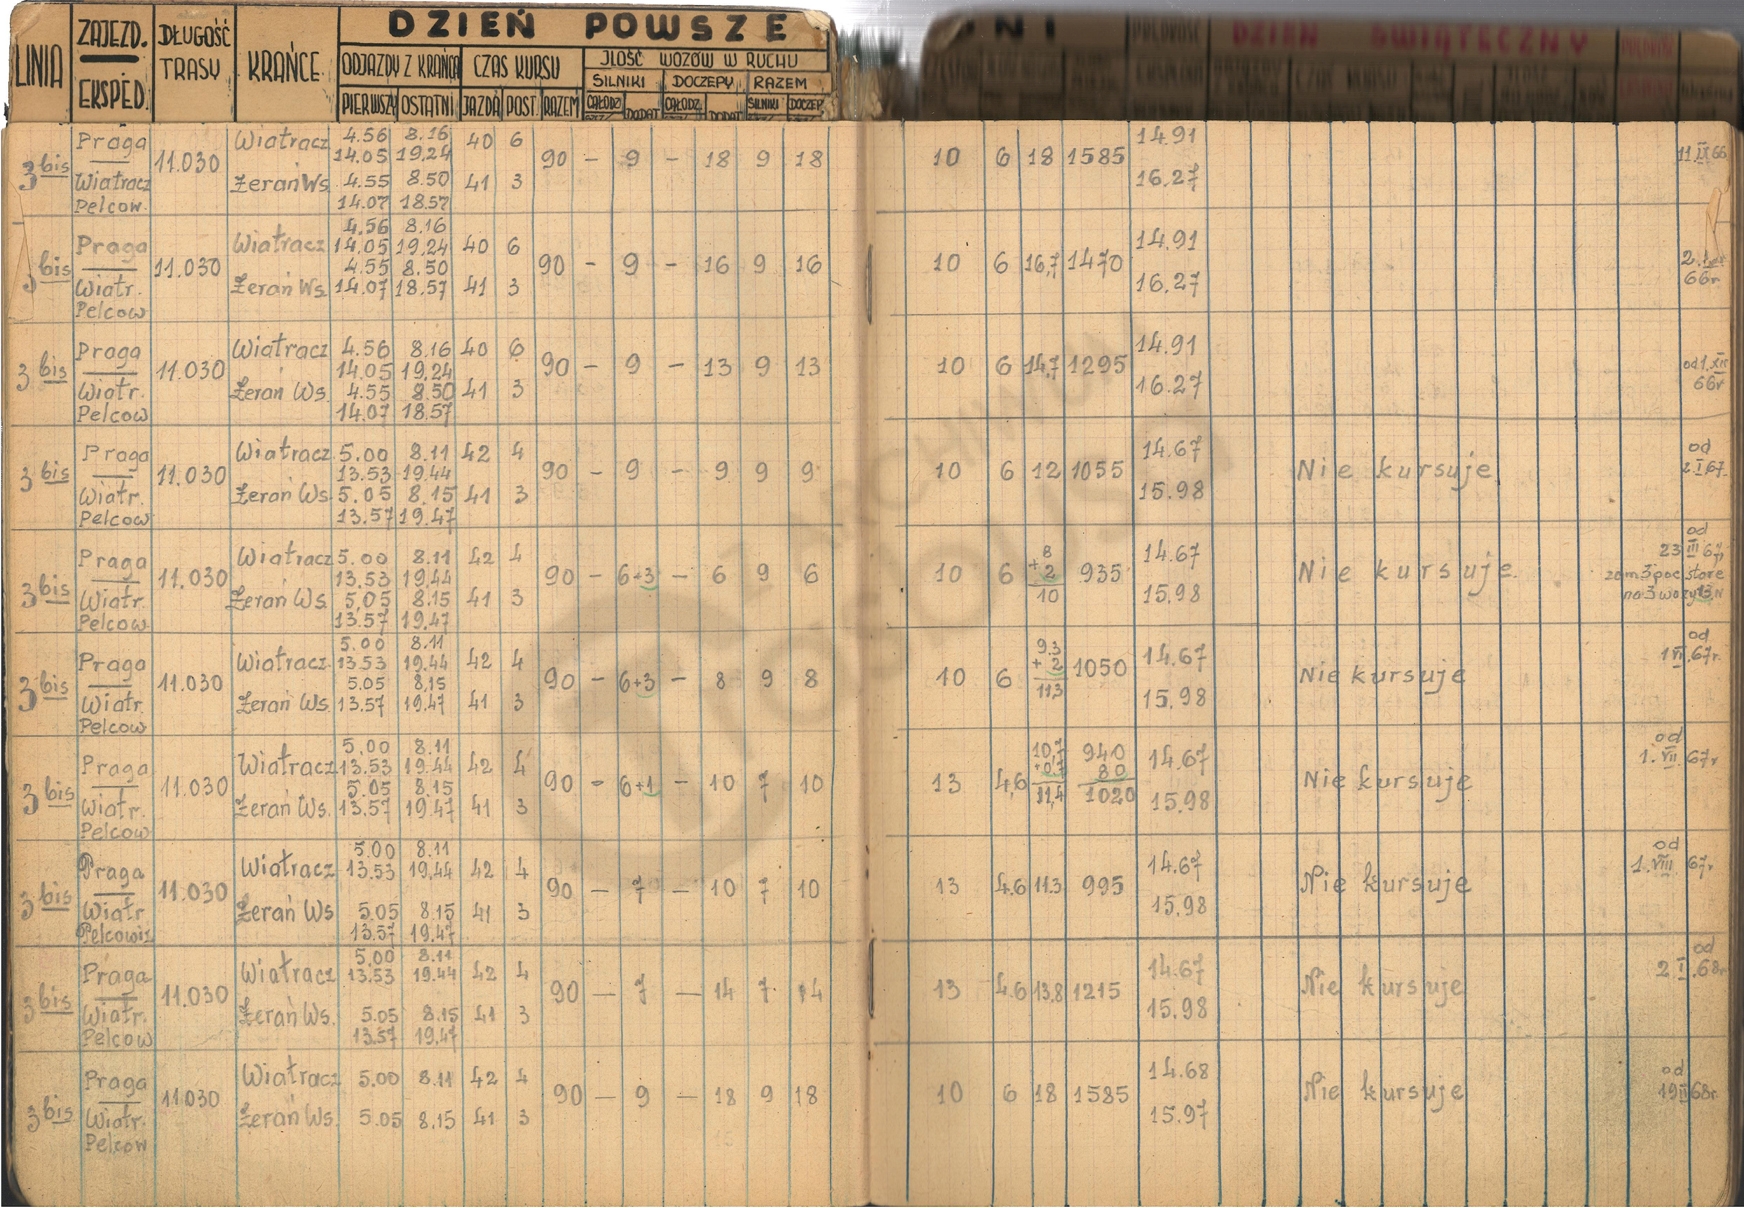 DZIEŃ POWSZE DNI DZIEŃ ŚWIĄTECZNY
LINIA ZAJEZD. EKSPED. DŁUGOŚĆ TRASY KRAŃCE ODJAZDY Z KRAŃCA CZAS KURSU JLOŚĆ WOZÓW W RUCHU
SILNIKI DOCZEPY RAZEM
PIERWSZY OSTATNI JAZDA POST. RAZEM CAŁODZ DODAT CAŁODZ DODAT SILNIKI DOCZEP
3 bis Praga 11.030 Wiatracz 4.56 8.16 40 6 90 - 9 - 18 9 18 10 6 18 1585 14.91 11.IX66
14.05 19.24
Wiatracz Żerań Ws. 4.55 8.50 41 3 16.27
Pelcow. 14.07 18.57
3 bis Praga 11.030 Wiatracz 4.56 8.16 40 6 90 - 9 - 16 9 16 10 6 16,7 1470 14.91
14,05 19,24
Wiatr. Żerań Ws. 4.55 8.50 41 3 16.27 66r
Pelcow 14.07 18.57
3 bis Praga 11.030 Wiatracz 4.56 8.16 40 6 90 - 9 - 13 9 13 10 6 14,7 1295 14.91 od 1.XII
14.05 19,24
Wiatr. Żerań Ws. 4.55 8.50 41 3 16.27 66r
Pelcow 14.07 18.57
3 bis Praga 11.030 Wiatracz 5.00 8.11 42 4 90 - 9 - 9 9 9 10 6 12 1055 14.67 Nie kursuje od
13.53 19.44
Wiatr. Żerań Ws. 5.05 8.15 41 3 15.98 2 I 67
Pelcow 13.57 19.47
3 bis Praga 11.030 Wiatracz 5.00 8.11 42 4 90 - 6+3 - 6 9 6 10 6 8 935 14.67 Nie kursuje. od
13.53 19.44 +2 23 III 67r
Wiatr. Żerań Ws. 5,05 8.15 41 3 10 15.98 zam 3 poc stare
Pelcow 13.57 19,47 na 3 wozy 13N
3 bis Praga 11.030 Wiatracz. 5.00 8.11 42 4 90 - 6+3 - 8 9 8 10 6 9.3 1050 14.67 Nie kursuje od
13.53 19.44 +2 1 VI.67r.
Wiatr. Żerań Ws. 5.05 8,15 41 3 11,3 15.98
Pelcow 13.57 19.47
3 bis Praga 11.030 Wiatracz 5.00 8.11 42 4 90 - 6+1 - 10 7 10 13 4,6 10,7 940 14.67 Nie kursuje od
13.53 19.44 +0,7 80 1.VII. 67r
Wiatr. Żerań Ws. 5.05 8.15 41 3 11,4 1020 15.98
Pelcow 13.57 19.47
3 bis Praga 11.030 Wiatracz 5.00 8.11 42 4 90 - 7 - 10 7 10 13 4.6 11.3 995 14.67 Nie kursuje od
13.53 19,44 1.VIII 67r
Wiatr Żerań Ws 5.05 8.15 41 3 15.98
Pelcowiz 13.57 19.47
3 bis Praga 11.030 Wiatracz 5.00 8.11 42 4 90 - 7 - 14 7 14 13 4.6 13,8 1215 14.67 Nie kursuje od
13.53 19.44 2 I .68r
Wiatr. Żerań Ws. 5.05 8.15 41 3 15.98
Pelcow 13.57 19,47
3 bis Praga 11.030 Wiatracz 5.00 8.11 42 4 90 - 9 - 18 9 18 10 6 18 1585 14.68 Nie kursuje od
Wiatr. Żerań Ws. 5.05 8,15 41 3 15.97 19 II 68r
Pelcow